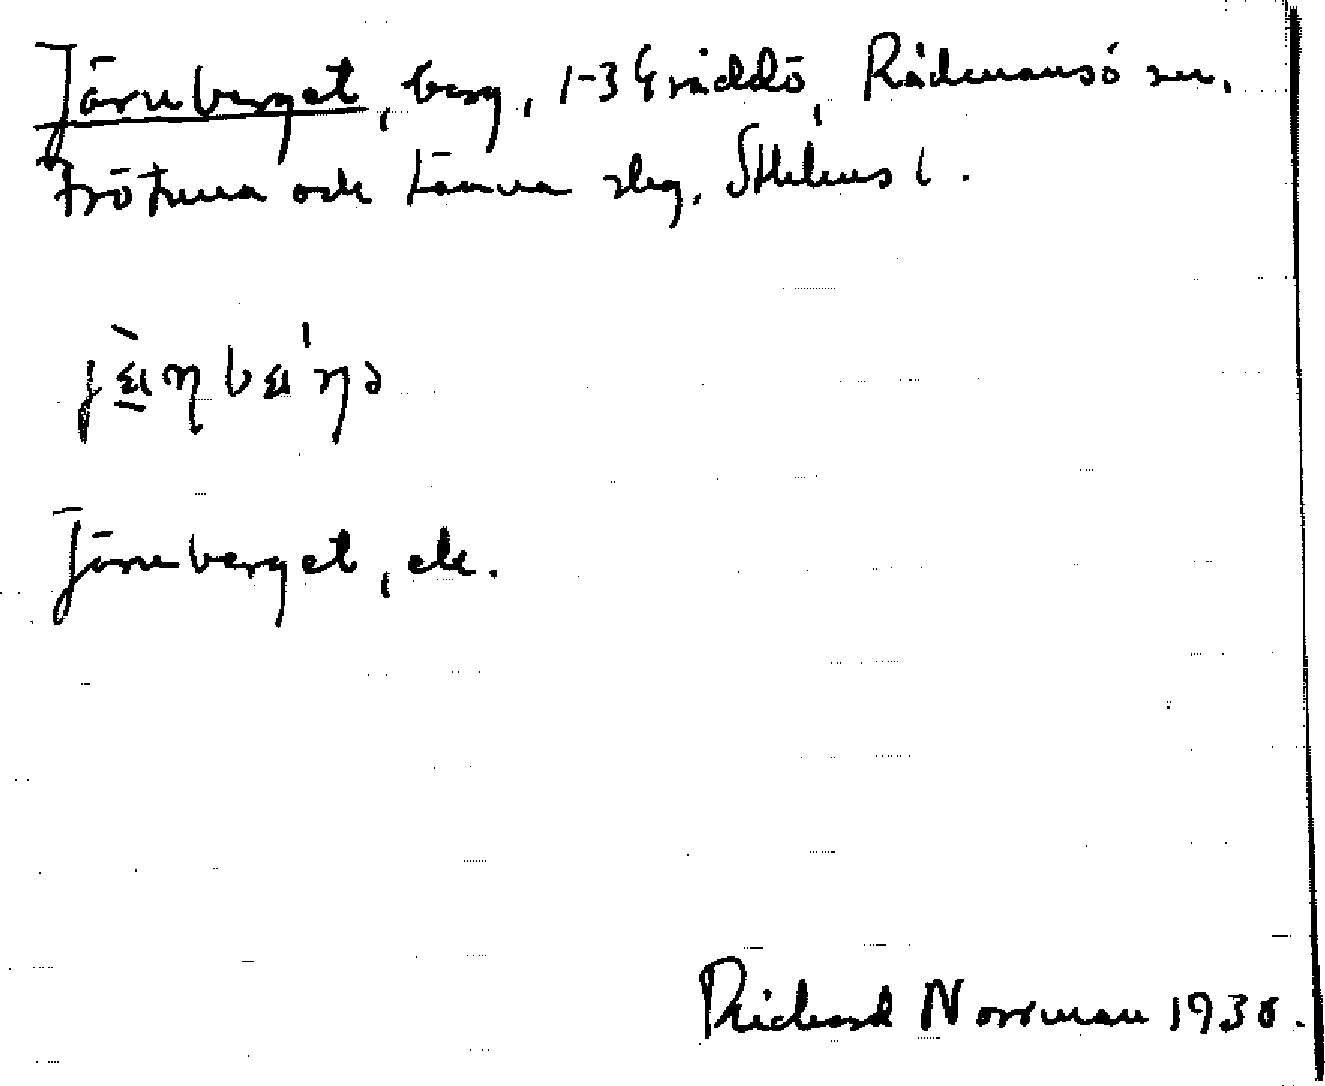 Järnberget, berg, 1-3 Gräddö, Rådmansö sn.
Frötuna och Länna slg, Sthlms l.
Järnberget, ek.
Richard Norrman 1930.